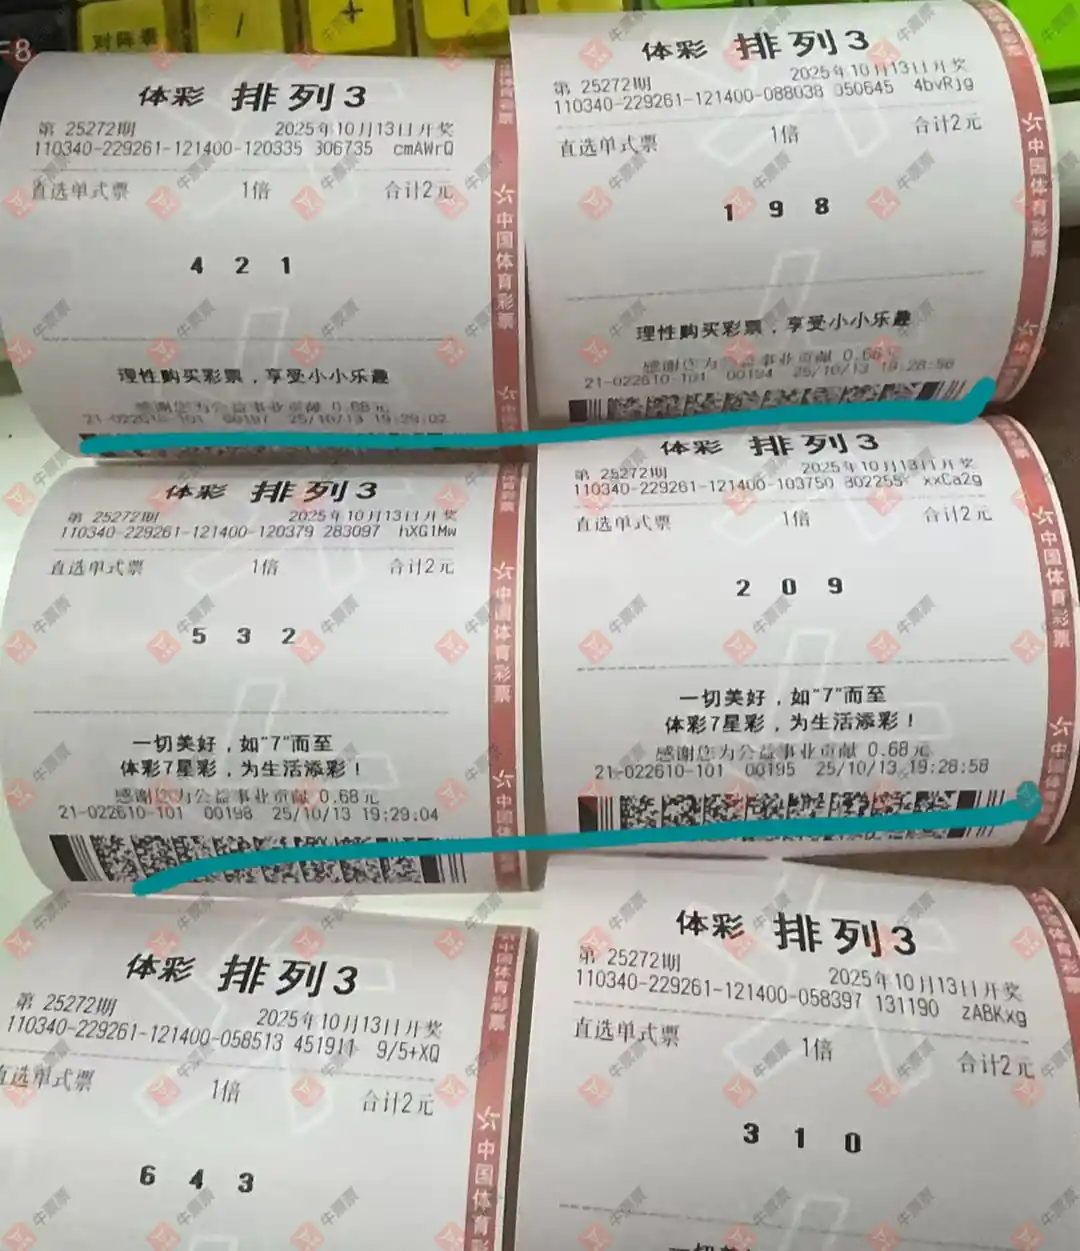 F8
对阵表
/
+
/
体彩 排列3
第 25272期 2025年10月13日开奖
110340-229261-121400-120335 306735 cmAWrQ
直选单式票 1倍 合计2元
4 2 1
理性购买彩票，享受小小乐趣
感谢您为公益事业贡献 0.68元
21-022610-101 00197 25/10/13 19:29:02
中国体育彩票
体彩 排列3
第 25272期 2025年10月13日开奖
110340-229261-121400-088038 050645 4bvRjg
直选单式票 1倍 合计2元
1 9 8
理性购买彩票，享受小小乐趣
感谢您为公益事业贡献 0.68元
21-022610-101 00194 25/10/13 19:28:56
中国体育彩票
体彩 排列3
第 25272期 2025年10月13日开奖
110340-229261-121400-120379 283097 hXG1Mw
直选单式票 1倍 合计2元
5 3 2
一切美好，如“7”而至
体彩7星彩，为生活添彩！
感谢您为公益事业贡献 0.68元
21-022610-101 00198 25/10/13 19:29:04
中国体育彩票
体彩 排列3
第 25272期 2025年10月13日开奖
110340-229261-121400-103750 802255 xxCa2g
直选单式票 1倍 合计2元
2 0 9
一切美好，如“7”而至
体彩7星彩，为生活添彩！
感谢您为公益事业贡献 0.68元
21-022610-101 00195 25/10/13 19:28:58
中国体育彩票
体彩 排列3
第 25272期 2025年10月13日开奖
110340-229261-121400-058513 451911 9/5+XQ
直选单式票 1倍 合计2元
6 4 3
中国体育彩
体彩 排列3
第 25272期 2025年10月13日开奖
110340-229261-121400-058397 131190 zABKxg
直选单式票 1倍 合计2元
3 1 0
牛票票